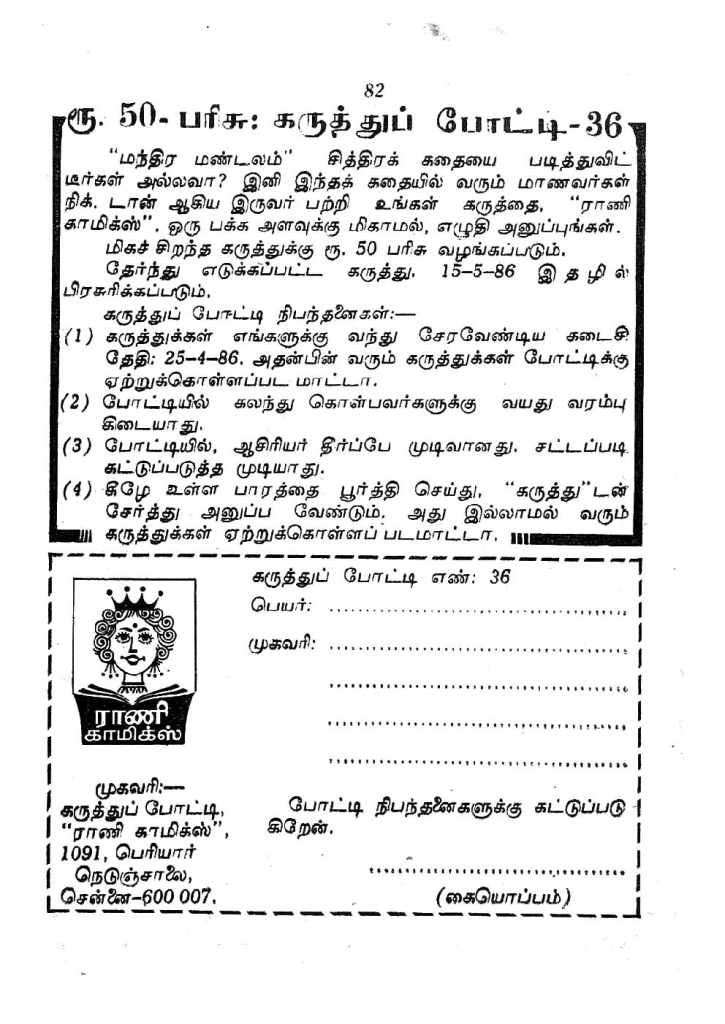 82
ரூ. 50- பரிசு: கருத்துப் போட்டி-36
"மந்திர மண்டலம்" சித்திரக் கதையை படித்துவிட்
டீர்கள் அல்லவா? இனி இந்தக் கதையில் வரும் மாணவர்கள்
நிக். டான் ஆகிய இருவர் பற்றி உங்கள் கருத்தை, "ராணி
காமிக்ஸ்", ஒரு பக்க அளவுக்கு மிகாமல், எழுதி அனுப்புங்கள்.
மிகச் சிறந்த கருத்துக்கு ரூ. 50 பரிசு வழங்கப்படும்.
தேர்ந்து எடுக்கப்பட்ட கருத்து, 15-5-86 இதழில்
பிரசுரிக்கப்படும்.
கருத்துப் போட்டி நிபந்தனைகள்:—
(1) கருத்துக்கள் எங்களுக்கு வந்து சேரவேண்டிய கடைசி
தேதி: 25-4-86. அதன்பின் வரும் கருத்துக்கள் போட்டிக்கு
ஏற்றுக்கொள்ளப்பட மாட்டா.
(2) போட்டியில் கலந்து கொள்பவர்களுக்கு வயது வரம்பு
கிடையாது.
(3) போட்டியில், ஆசிரியர் தீர்ப்பே முடிவானது. சட்டப்படி
கட்டுப்படுத்த முடியாது.
(4) கீழே உள்ள பாரத்தை பூர்த்தி செய்து, "கருத்து"டன்
சேர்த்து அனுப்ப வேண்டும். அது இல்லாமல் வரும்
கருத்துக்கள் ஏற்றுக்கொள்ளப் படமாட்டா.
கருத்துப் போட்டி எண்: 36
பெயர்: ........................................
முகவரி: ........................................
ராணி
காமிக்ஸ்
முகவரி:—
கருத்துப் போட்டி,
"ராணி காமிக்ஸ்",
1091, பெரியார்
நெடுஞ்சாலை,
சென்னை-600 007.
போட்டி நிபந்தனைகளுக்கு கட்டுப்படு
கிறேன்.
........................................
(கையொப்பம்)